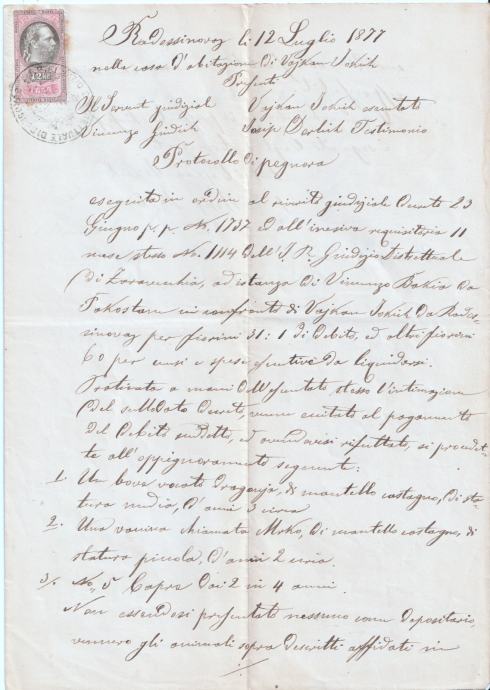 12 kr
Radessinovaz li 12 Luglio 1877
nella casa d'abitazione di Vajkan Jokich
Presenti
Il Servent giudiziale Vajkan Jokich esecutato
Vincenzo Josip Testimonio
Protocollo di pegnora
eseguita in ordine al riverito giudiziale Decreto 23
Giugno p. p. No. 1737 ed all'inesiva requisitoria 11
mese stesso No. 1114 dell'I. R. Giudizio Distrettuale
di Zaravecchia, ad istanza di Vincenzo Bakia da
Pakostane in confronto di Vajkan Jokich da Rades-
sinovaz per fiorini 31:1 di debito, ed altri fiorini
60 per censi e spese esecutive da liquidarsi.
Praticata a mani dell'esecutato stesso l'intimazione
del sullodato Decreto, venne eccitato al pagamento
del debito suddetto, ed avendovisi rifiutato, si procedet-
te all'oppignoramento seguente:
1. Un bove vocato Dragonja, di mantello castagno, di sta-
tura media, d'anni 3 circa
2. Una vaccina chiamata Mrko, di mantello castagno, di
statura piccola, d'anni 2 circa.
3. No. 5 Capre dai 2 in 4 anni.
Non essendosi presentato nessuno come depositario,
vennero gli animali sopra descritti affidati in